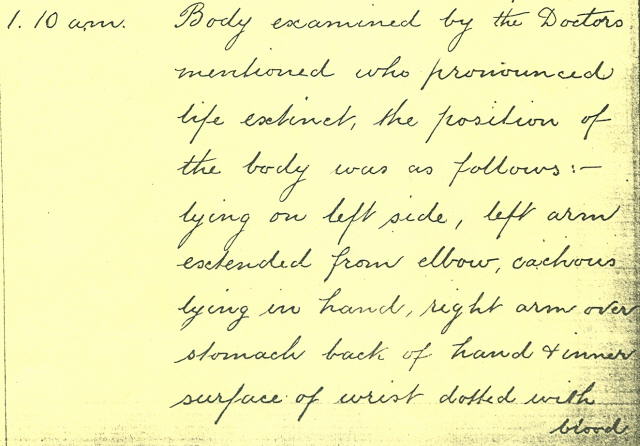 1.10 a.m. Body examined by the Doctors
mentioned who pronounced
life extinct, the position of
the body was as follows:—
lying on left side, left arm
extended from elbow, cachous
lying in hand, right arm over
stomach back of hand & inner
surface of wrist dotted with
blood